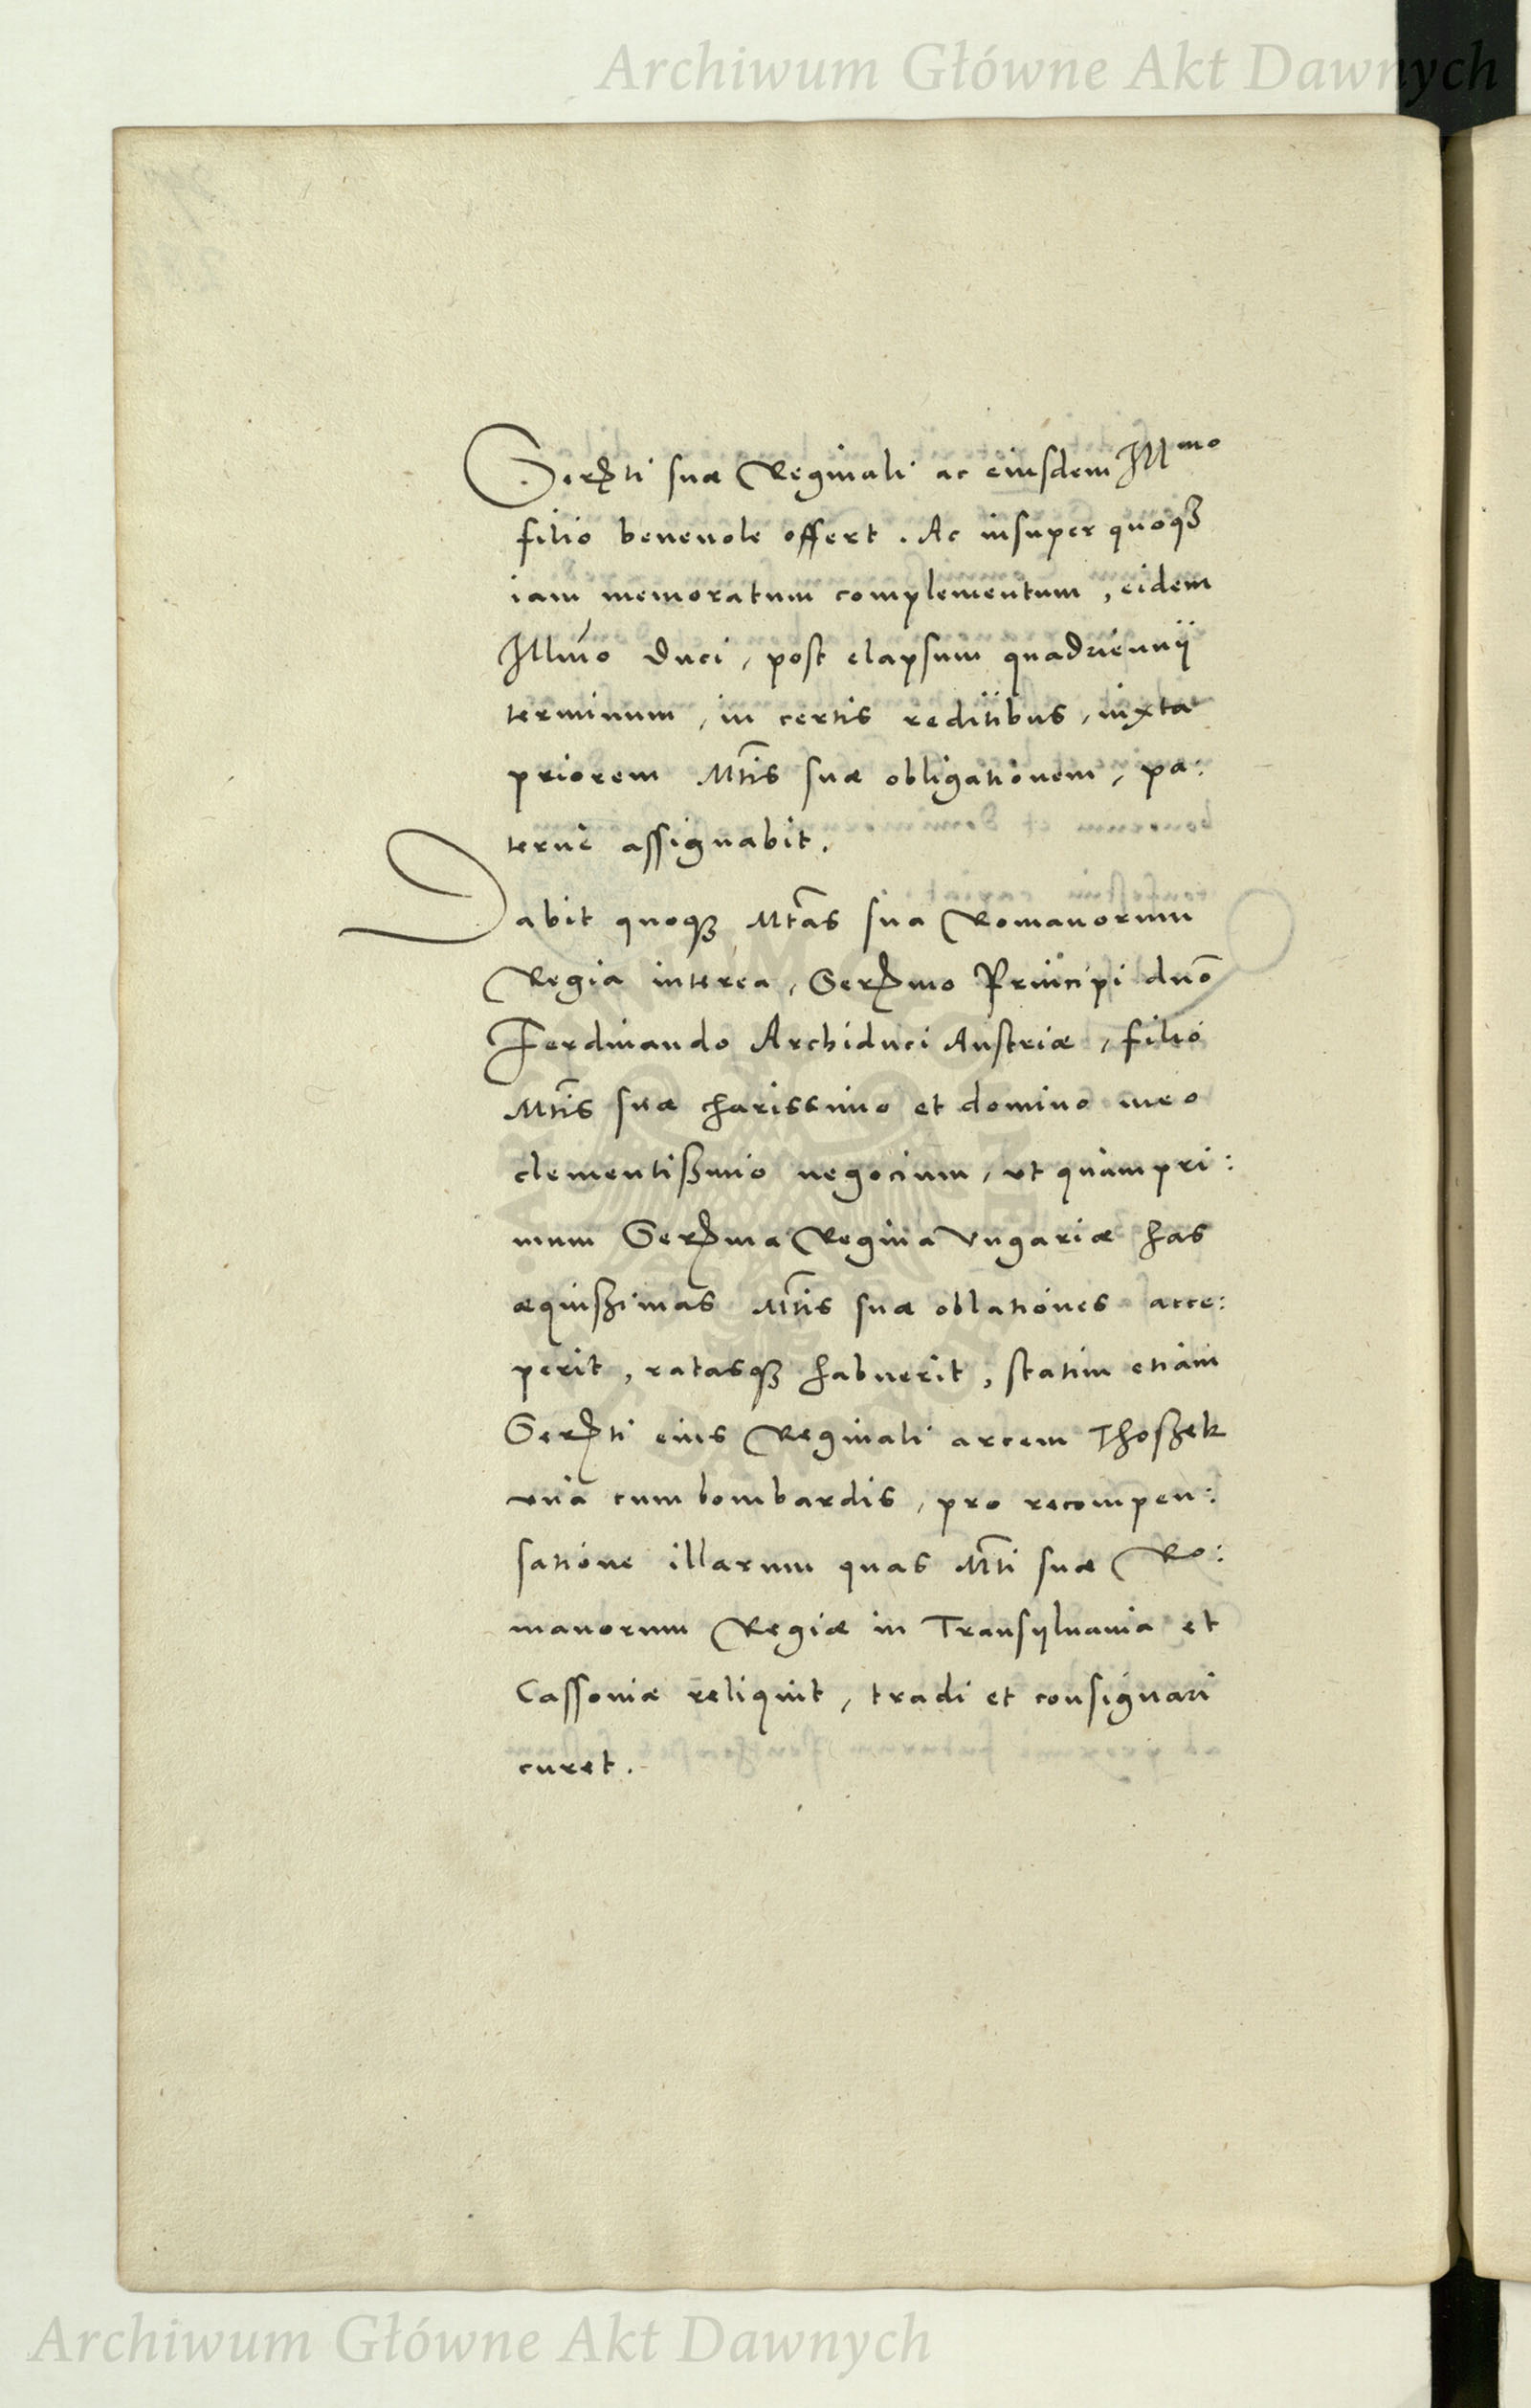 Archiwum Główne Akt Dawnych
Serᵐti suæ Reginali ac eiusdem Illᵐᵒ
filio beneuole offert. Ac insuper quoqꝫ
iam memoratum complementum, eidem
Illmo duci, post elapsum quadriennij
terminum, in certis reditibus, iuxta
priorem Mtis suæ obligationem, pa:
terne assignabit.
Dabit quoqꝫ Mtas sua Romanorum
Regia interea, Serᵐmo Principi dno
Ferdinando Archiduci Austriæ, filio
Mtis suæ charissimo et domino meo
clementißimo negocium, vt quàmpri:
mum Serᵐma Regina Vngariæ has
æquißimas Mtis suæ oblationes acce:
perit, ratasqꝫ habuerit, statim etiam
Serᵐti eius Reginali arcem Thoßek
vnà cum bombardis, pro recompen:
satione illarum quas Mti suæ Ro:
manorum Regiæ in Transyluania et
Cassouiæ reliquit, tradi et consignari
curet.
Archiwum Główne Akt Dawnych